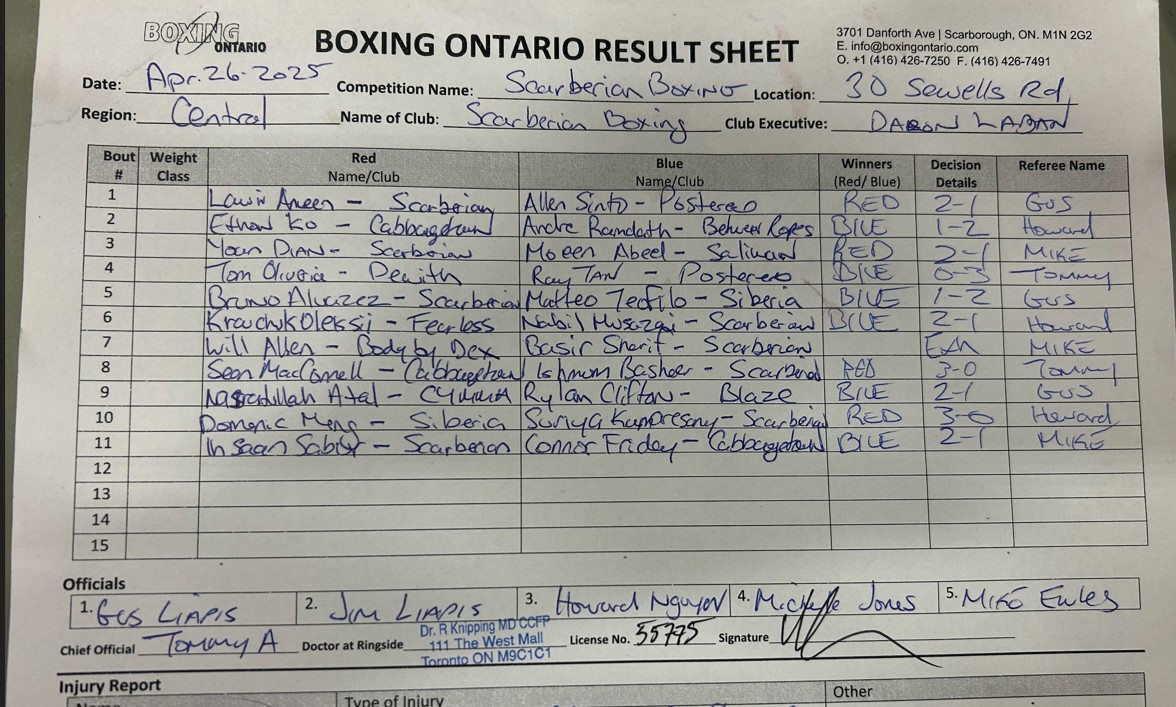 BOXING ONTARIO
BOXING ONTARIO RESULT SHEET
3701 Danforth Ave | Scarborough, ON. M1N 2G2
E. info@boxingontario.com
O. +1 (416) 426-7250 F. (416) 426-7491
Date: Apr. 26-2025 Competition Name: Scarberian Boxing Location: 30 Sewells Rd,
Region: Central Name of Club: Scarberian Boxing Club Executive: DARON LABAN
Bout # Weight Class Red Name/Club Blue Name/Club Winners (Red/ Blue) Decision Details Referee Name
1 Aneen - Scarberian Allen Sinto - Postereo RED 2-1 Gus
2 Ethan Ko - Cabbagetown Andre Ramdath - Between Ropes BLUE 1-2 Howard
3 DIAN - Scarberian Moeen Abeel - Saliwan RED 2-1 MIKE
4 Tom Oliveria - Dewith Ray TAN - Postereo BLUE 0-3 Tommy
5 Bruno Alvazez - Scarberian Matteo Teofilo - Siberia BLUE 1-2 Gus
6 Krawchuk Oleksii - Fearless Nabil - Scarberian BLUE 2-1 Howard
7 Will Allen - Body by Dex Basir Sharif - Scarberian Exh MIKE
8 Sean MacConnell - Cabbagetown Basheer - Scarberian RED 3-0 Tommy
9 Atal - Rylan Clifton - Blaze BLUE 2-1 Gus
10 Domenic Meng - Siberia Scarberian RED 3-0 Howard
11 Ihsaan - Scarberian Connor Friday - Cabbagetown BLUE 2-1 MIKE
12
13
14
15
Officials
1. Gus LIAPIS 2. JIM LIAPIS 3. Howard Nguyen 4. Michelle Jones 5. MIKE
Chief Official Tommy A Doctor at Ringside Dr. R Knipping MD CCFP License No. 55775 Signature
111 The West Mall
Toronto ON M9C1C1
Injury Report
Name Type of Injury Other